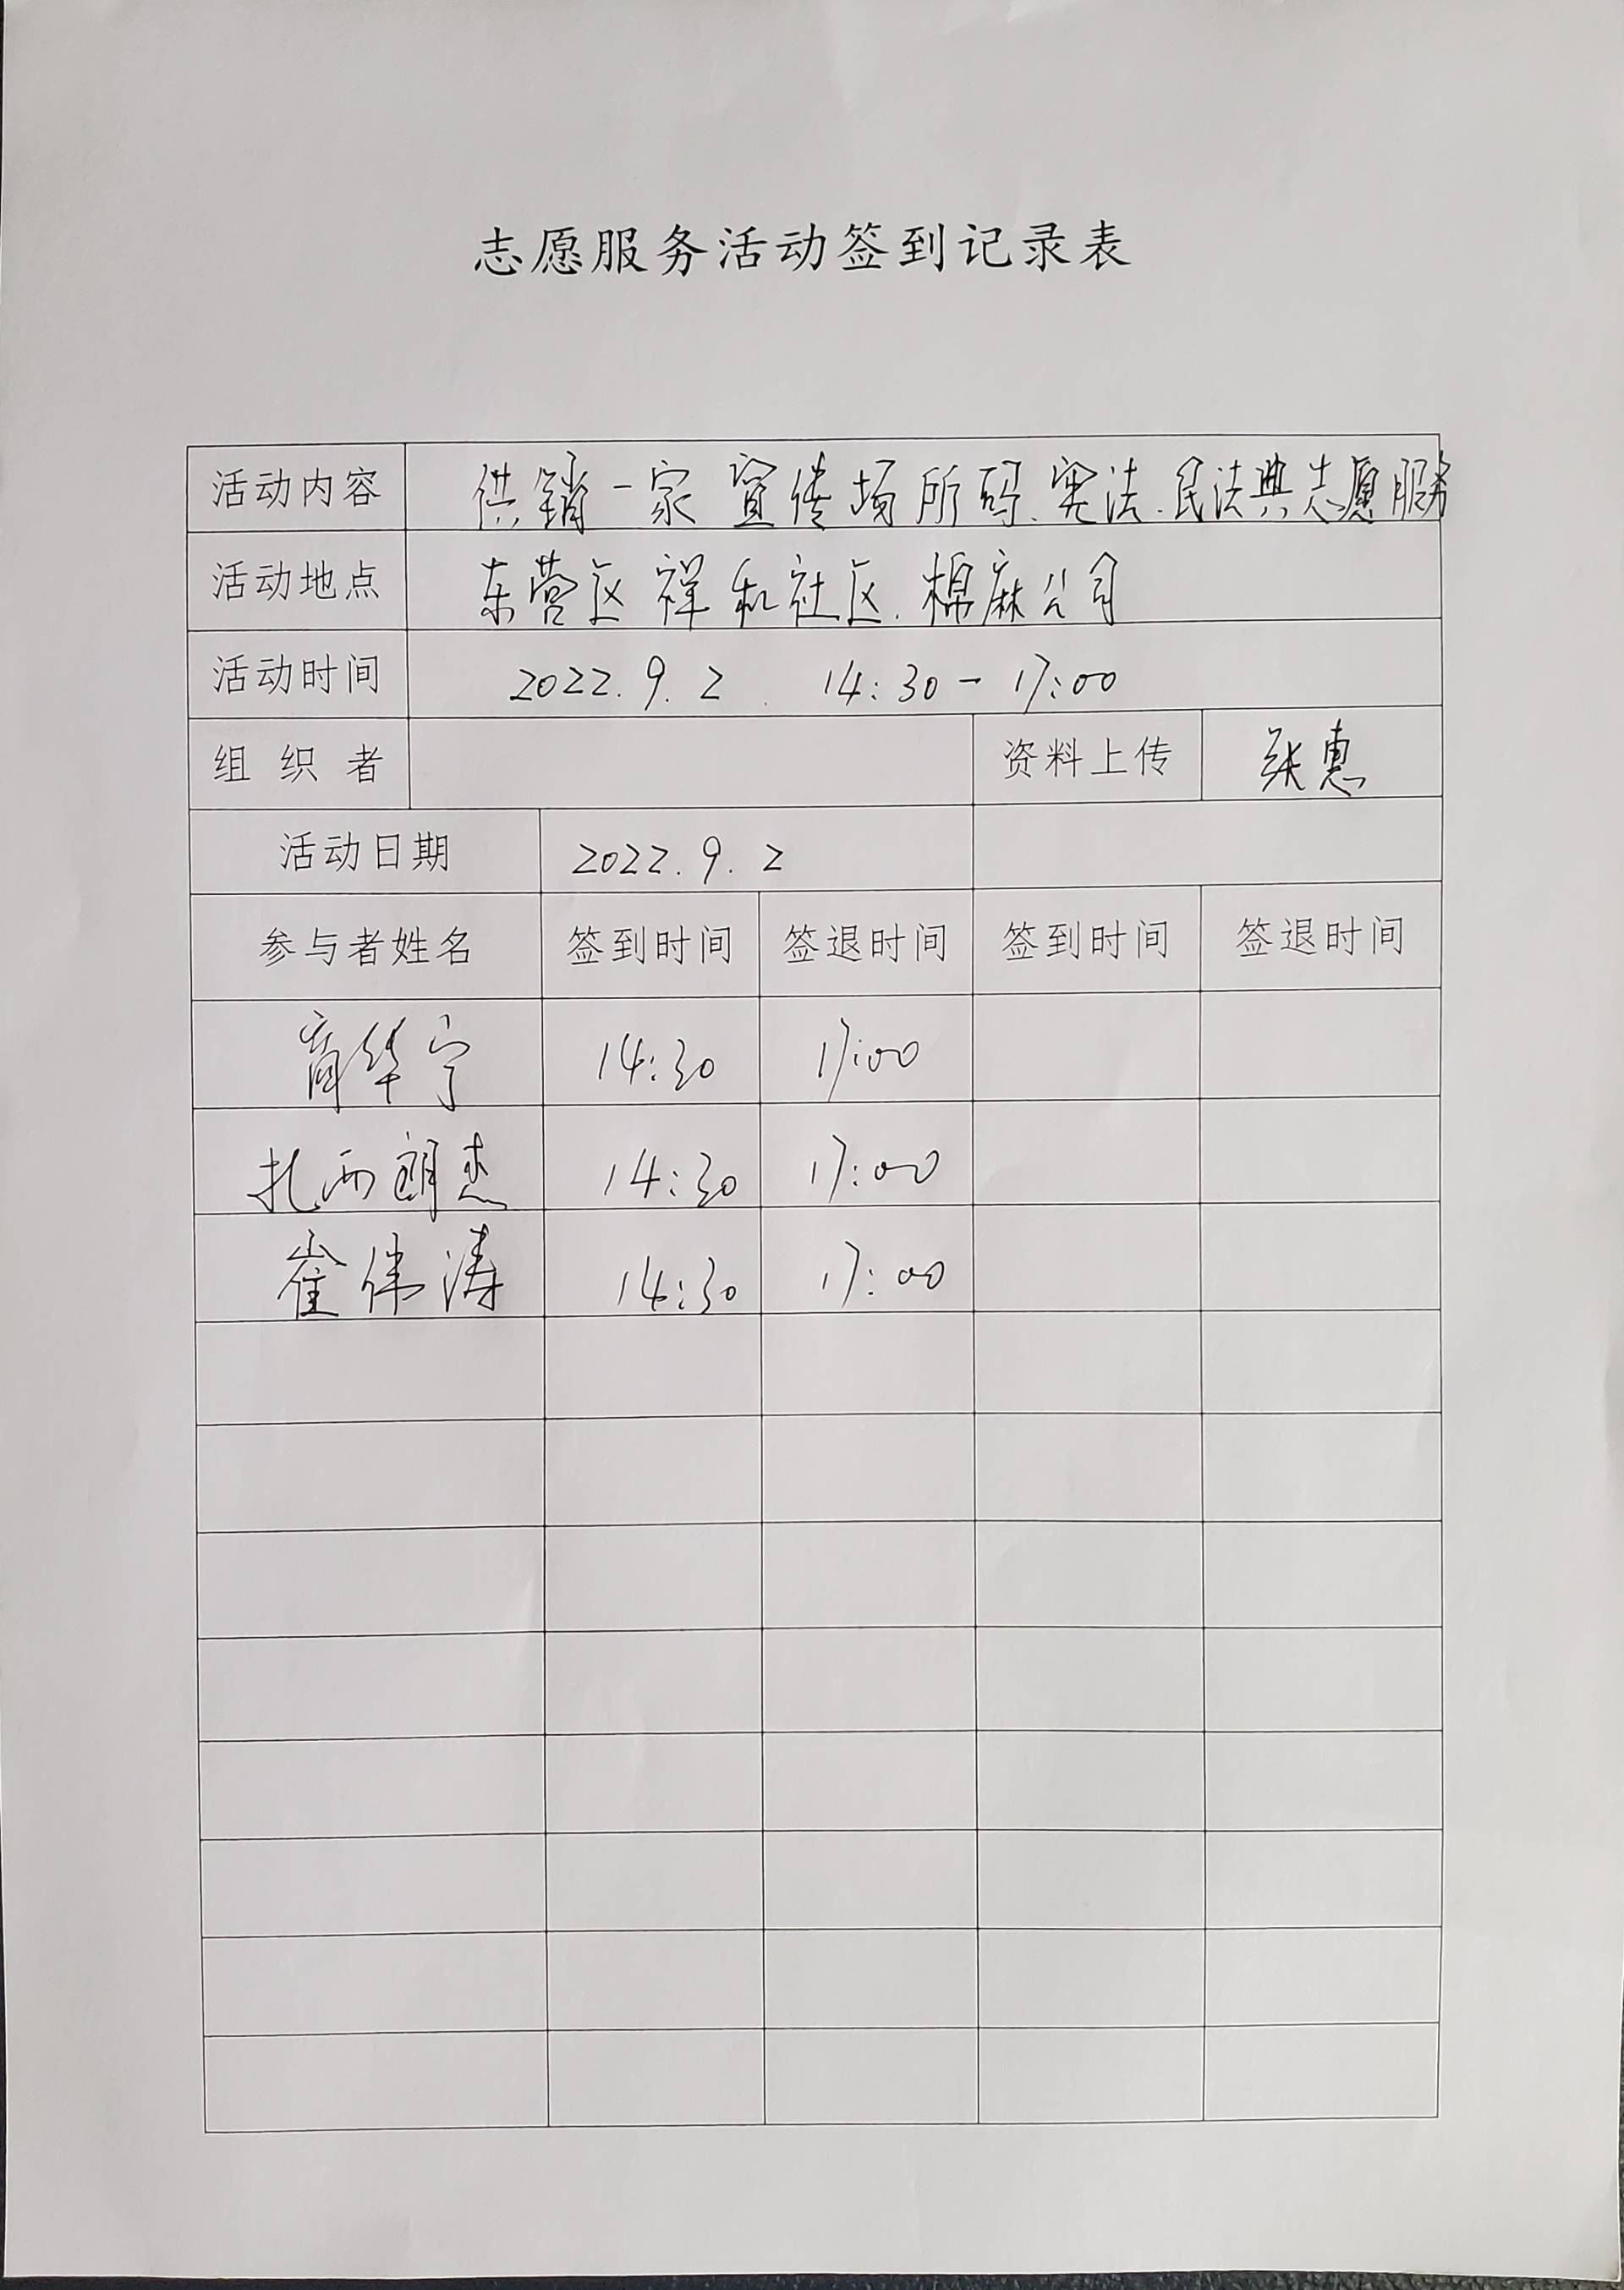 志愿服务活动签到记录表
活动内容 供销一家宣传场所码、宪法、民法典志愿服务
活动地点 东营区祥和社区、棉麻公司
活动时间 2022.9.2 14:30-17:00
组织者 资料上传 张惠
活动日期 2022.9.2
参与者姓名 签到时间 签退时间 签到时间 签退时间
商华宁 14:30 17:00
扎西朗杰 14:30 17:00
崔伟涛 14:30 17:00